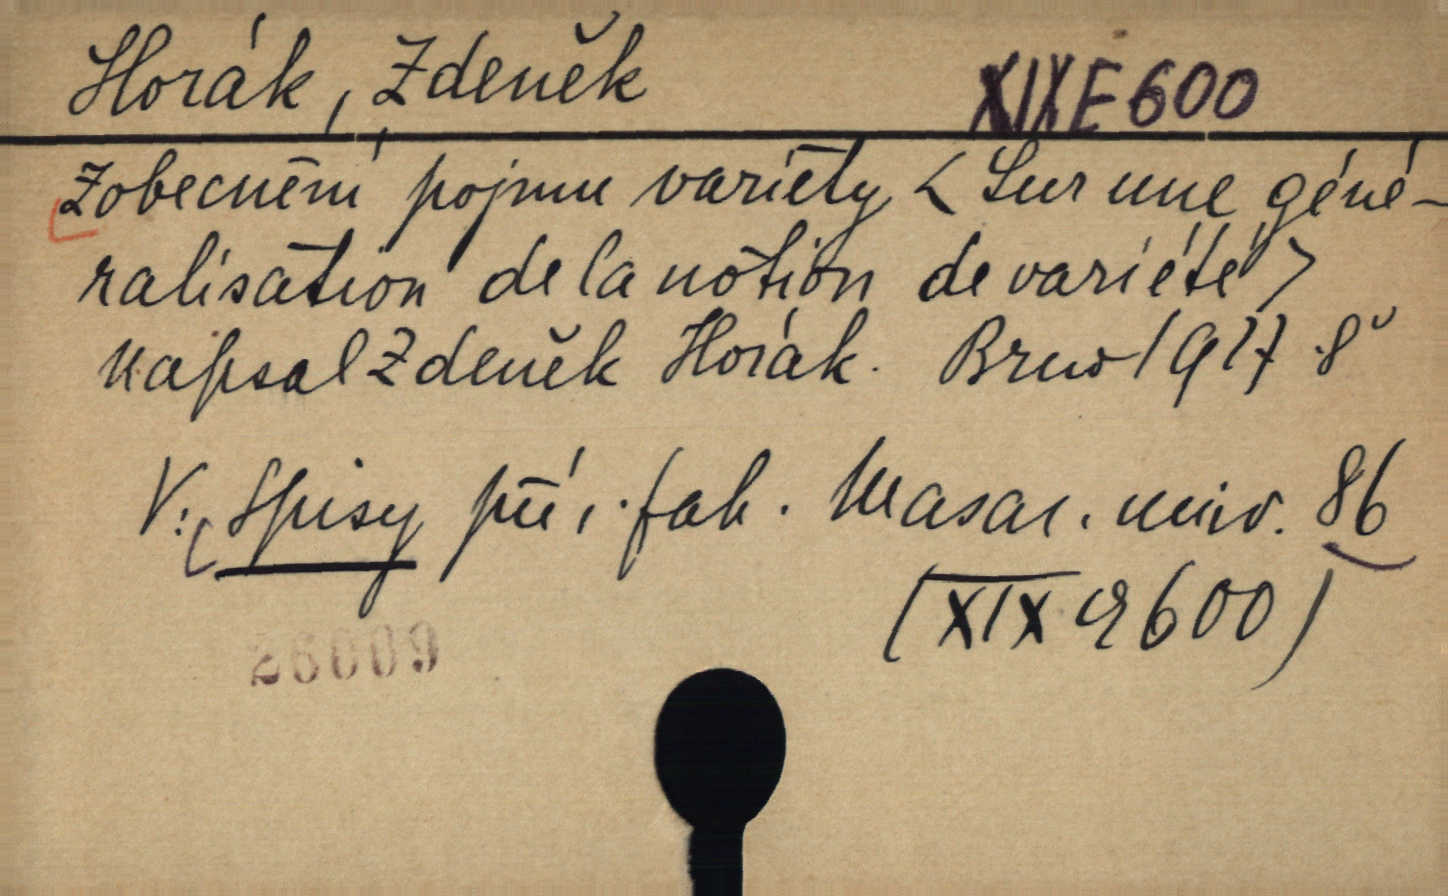 Horák, Zdeněk XIXE600
Zobecnění pojmu variéty < Sur une géné-
ralisation de la notion de variété >
Napsal Zdeněk Horák. Brno 1927 8°
V: Spisy pří. fak. Masar. univ. 86
(XIX E 600)
26009